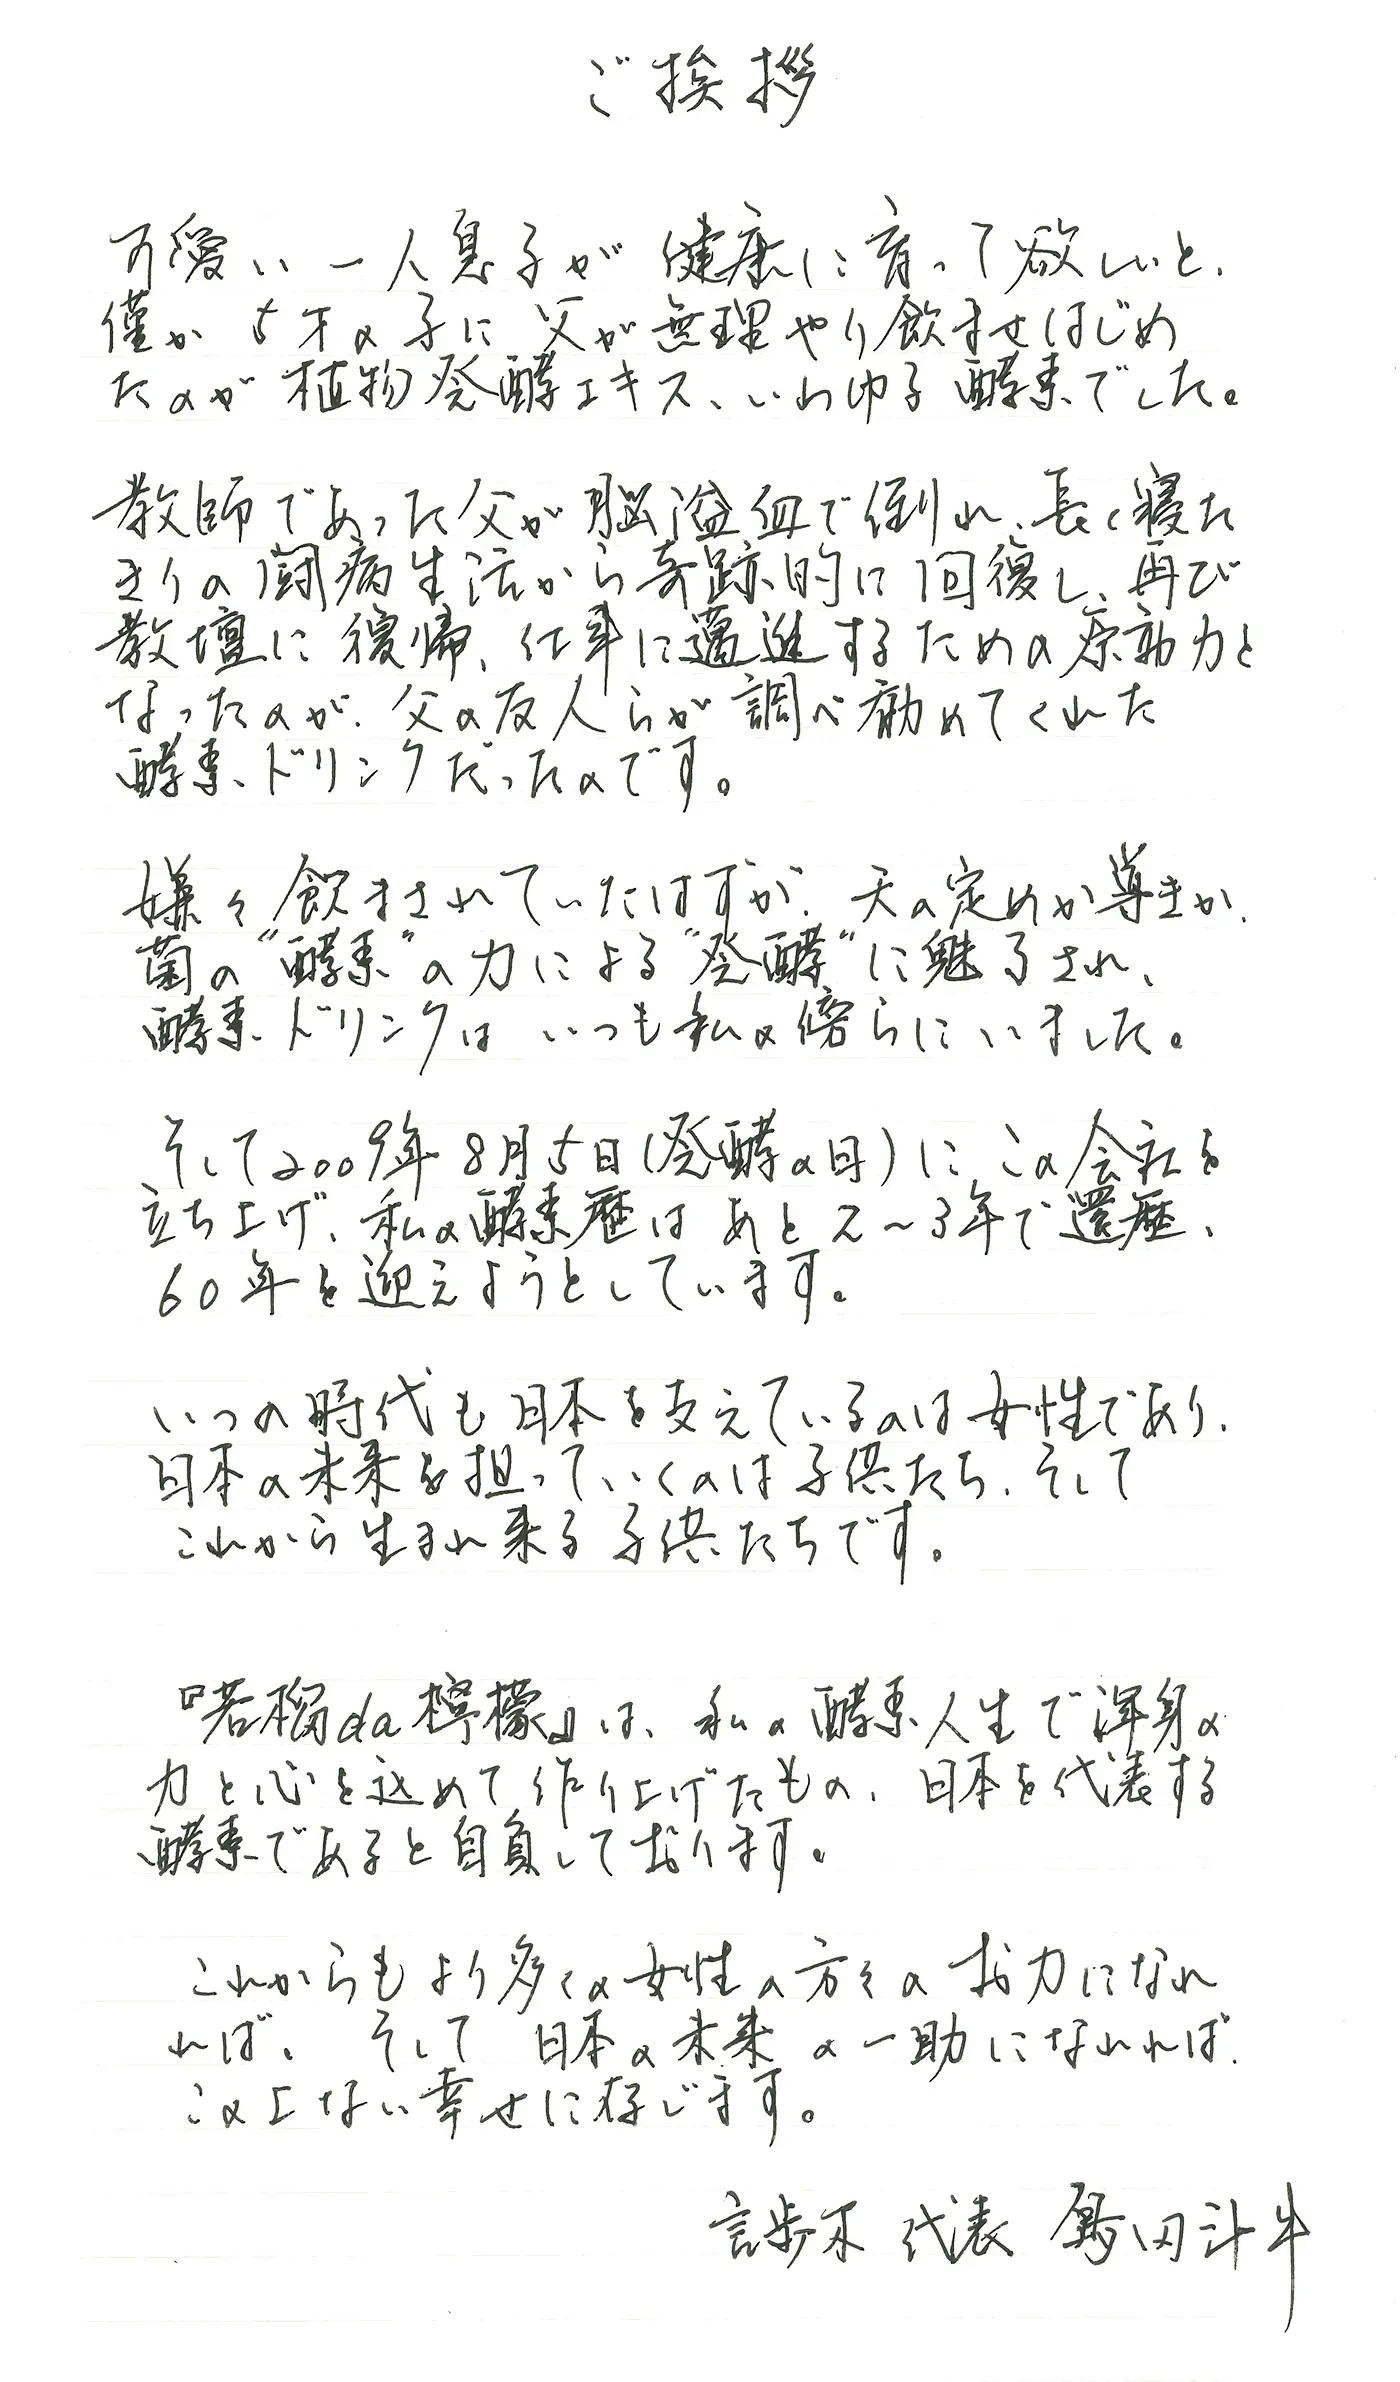 ご挨拶
可愛い一人息子が健康に育って欲しいと、
僅か5才の子に父が無理やり飲ませはじめ
たのが植物発酵エキス、いわゆる酵素でした。
教師であった父が脳溢血で倒れ、長く寝た
きりの闘病生活から奇跡的に回復し、再び
教壇に復帰、仕事に邁進するための原動力と
なったのが、父の友人らが調べ勧めてくれた
酵素ドリンクだったのです。
嫌々飲まされていたはずが、天の定めか導きか、
菌の“酵素”の力による“発酵”に魅了され、
酵素ドリンクはいつも私の傍らにいました。
そして2009年8月5日(発酵の日)にこの会社を
立ち上げ、私の酵素歴はあと2〜3年で還歴、
60年を迎えようとしています。
いつの時代も日本を支えているのは女性であり、
日本の未来を担っていくのは子供たち、そして
これから生まれ来る子供たちです。
『若榴da檸檬』は、私の酵素人生で渾身の
力と心を込めて作り上げたもの、日本を代表する
酵素であると自負しております。
これからもより多くの女性の方々のお力になれ
れば、そして日本の未来の一助になれれば、
この上ない幸せに存じます。
言歩木 代表 田斗牛